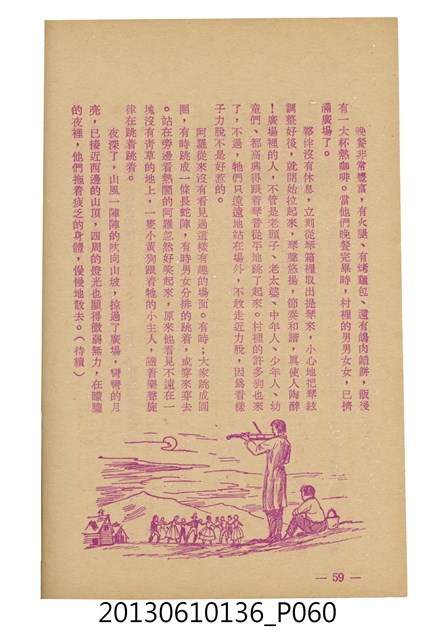 晚餐非常豐富，有火腿、有烤麵包、還有鴿肉餡餅，飯後
有一大杯熱咖啡。當他們晚餐完畢時，村裡的男男女女，已擠
滿廣場了。
夥伴沒有休息，立刻從琴箱裡取出提琴來，小心地把琴絃
調整好後，就開始拉起來，琴聲悠揚，節奏和諧，真使人陶醉
！廣場裡的人，不管是老頭子、老太婆、中年人、少年人、幼
童們、都高興得跟着琴音從平地跳了起來。村裡的許多狗也來
了，不過，牠們只遠遠地站在場外，不敢走近力脫，因爲看樣
子力脫不是好惹的。
阿羅從來沒有看見過這樣有趣的場面。有時；大家跳成圓
圈，有時跳成一條長蛇陣，有時男女分排的跳着，或穿來穿去
。站在旁邊看熱鬧的阿羅忽然好笑起來，原來他看見不遠在一
塊沒有青草的地上，一隻小黃狗跟着牠的小主人，隨着樂聲旋
律在跳着跳着。
夜深了，山風一陣陣的吹向山坡，掠過了廣場，彎彎的月
亮，已接近西邊的山頂，四周的燈光也顯得微弱無力，在朦朧
的夜裡，他們拖着疲乏的身體，慢慢地散去。（待續）
— 59 —
20130610136_P060